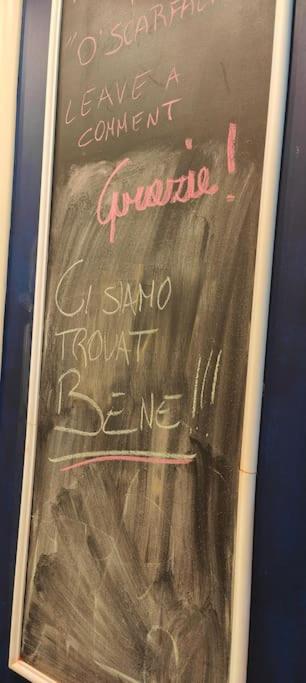 "O'SCARFAC
LEAVE A
COMMENT
Grazie!
CI SIAMO
TROVAT
BENE!!!